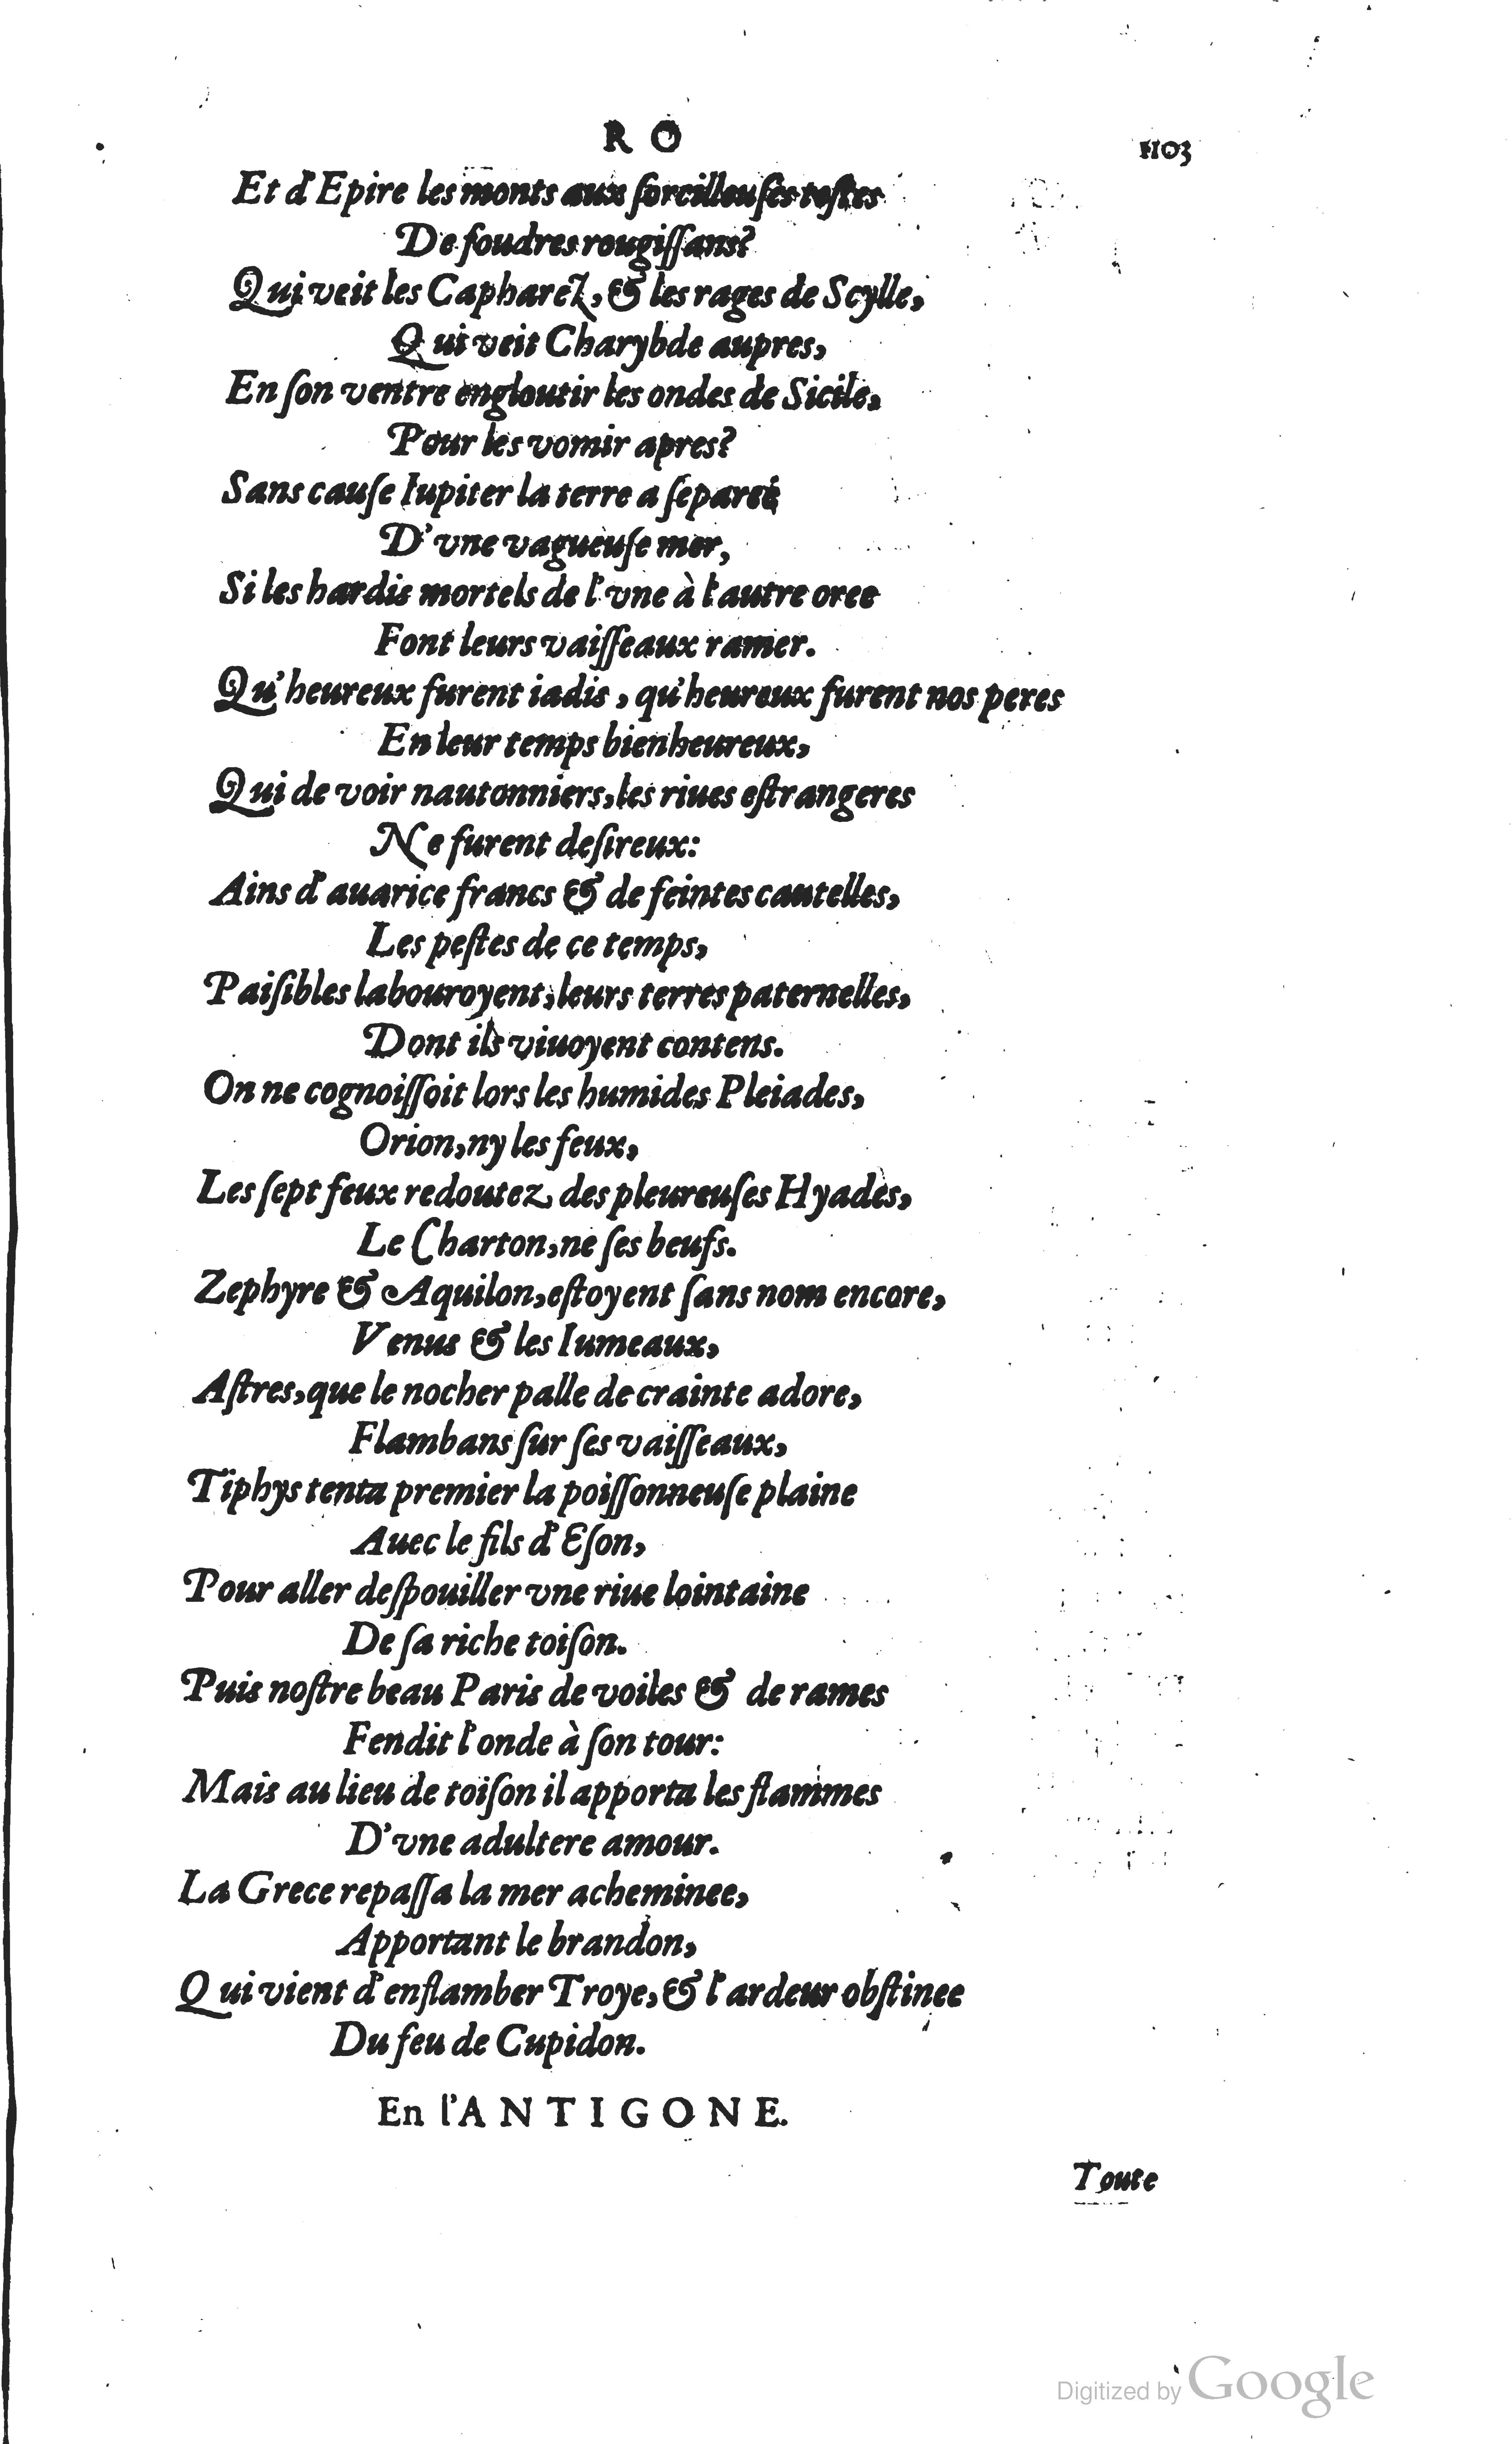 R O
1103
Et d'Epire les monts aux sorcilleuses testes
De foudres rougissans?
Qui veit les Capharez, & les rages de Scylle,
Qui veit Charybde aupres,
En son ventre engloutir les ondes de Sicile,
Pour les vomir apres?
Sans cause Iupiter la terre a separee
D'vne vagueuse mer,
Si les hardis mortels de l'vne à l'autre oree
Font leurs vaisseaux ramer.
Qu'heureux furent iadis, qu'heureux furent nos peres
En leur temps bienheureux,
Qui de voir nautonniers, les riues estrangeres
Ne furent desireux:
Ains d'auarice francs & de feintes cautelles,
Les pestes de ce temps,
Paisibles labouroyent, leurs terres paternelles,
Dont ils viuoyent contens.
On ne cognoissoit lors les humides Pleiades,
Orion, ny les feux,
Les sept feux redoutez des pleureuses Hyades,
Le Charton, ne ses beufs.
Zephyre & Aquilon, estoyent sans nom encore,
Venus & les Iumeaux,
Astres, que le nocher palle de crainte adore,
Flambans sur ses vaisseaux,
Tiphys tenta premier la poissonneuse plaine
Auec le fils d'Eson,
Pour aller despouiller vne riue lointaine
De sa riche toison.
Puis nostre beau Paris de voiles & de rames
Fendit l'onde à son tour:
Mais au lieu de toison il apporta les flammes
D'vne adultere amour.
La Grece repassa la mer acheminee,
Apportant le brandon,
Qui vient d'enflamber Troye, & l'ardeur obstinee
Du feu de Cupidon.
En l'ANTIGONE.
Toute
Digitized by Google